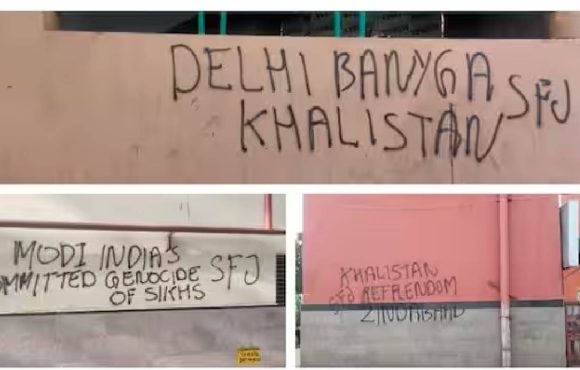 DELHI BANYGA SFJ
KHALISTAN
MODI INDIA'S
OMMITTED GENOCIDE SFJ
OF SIKHS
KHALISTAN
SFJ REFRENDOM
ZINDABAAD